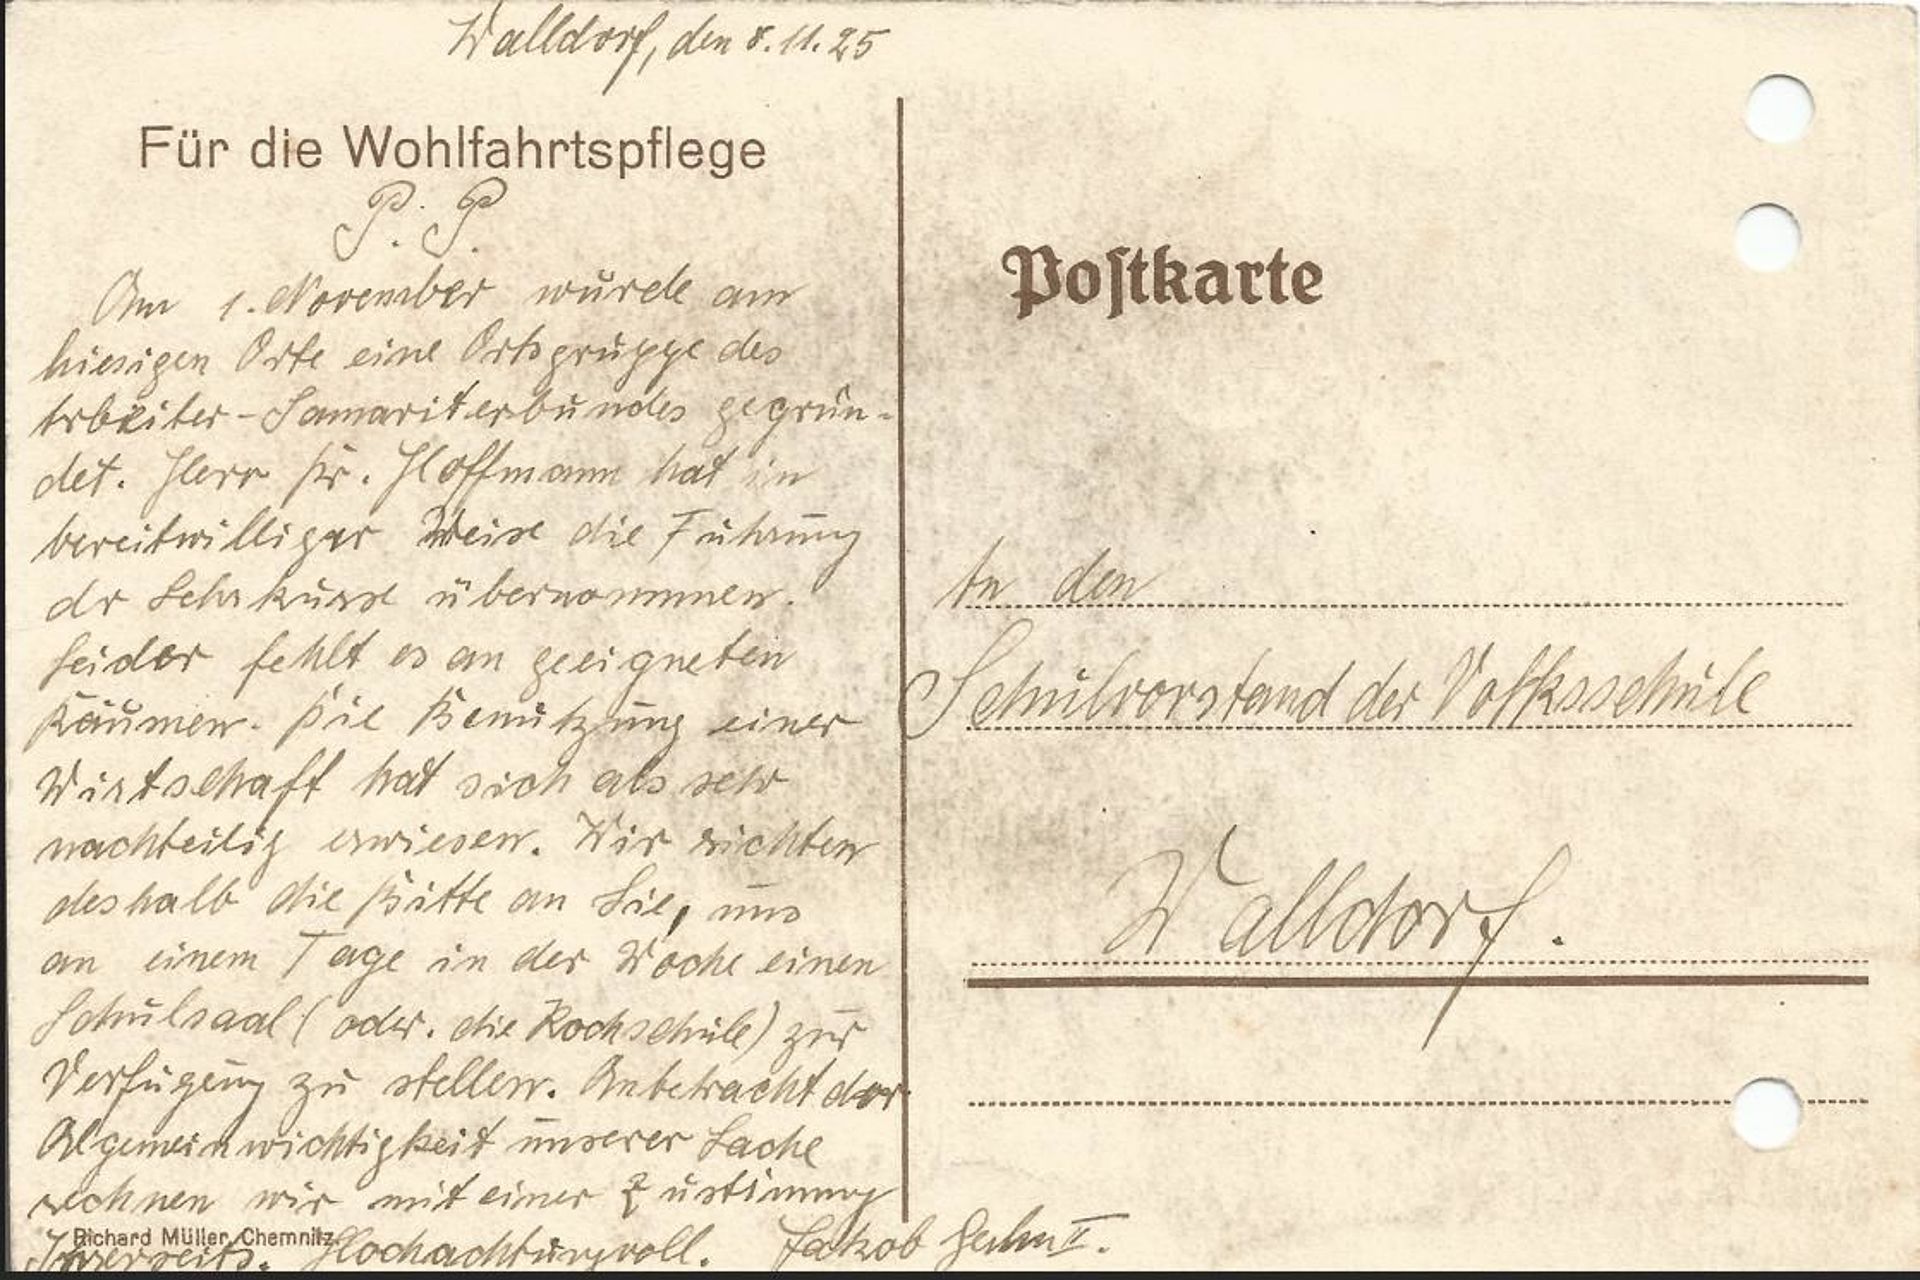 Walldorf, den 8.11.25
Für die Wohlfahrtspflege
P. P.
Am 1. November wurde am
hiesigen Orte eine Ortsgruppe des
Arbeiter-Samariterbundes gegrün-
det. Herr Dr. Hoffmann hat in
bereitwilliger Weise die Führung
der Lehrkurse übernommen.
Leider fehlt es an geeigneten
Räumen. Die Benützung einer
Wirtschaft hat sich als sehr
nachteilig erwiesen. Wir richten
deshalb die Bitte an Sie, uns
an einem Tage in der Woche einen
Schulsaal (oder. die Kochschule) zur
Verfügung zu stellen. Anbetracht der
Algemeinwichtigkeit unserer Sache
rechnen wir mit einer Zustimmung
Ihrerseits. Hochachtungvoll. Jakob II.
Richard Müller, Chemnitz
Postkarte
An den
Schulvorstand der Volksschule
Walldorf.